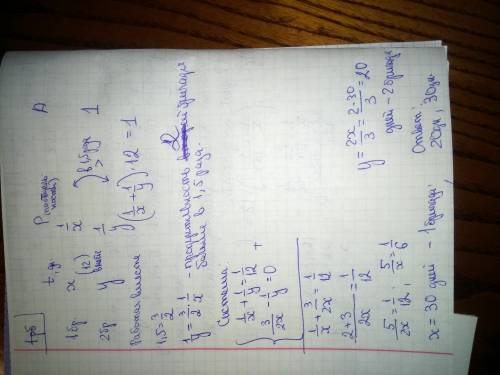 t, дн P(производительность) A
1бр. x (12) 1/x в 1,5 раза >
2бр y вмест 1/y 1
Работая вместе (1/x + 1/y) · 12 = 1
1,5 = 3/2
1/y = 3/2 · 1/x - производительность 2 бригады
больше в 1,5 раза.
Система
{ 1/x + 1/y = 1/12 +
3/2x - 1/y = 0
1/x + 3/2x = 1/12
2+3/2x = 1/12
5/2x = 1/12; 5/x = 1/6
x = 30 дней - 1 бригада;
y = 2x/3 = 2·30/3 = 20
дней - 2 бригада
Ответ:
20дн, 30дн.